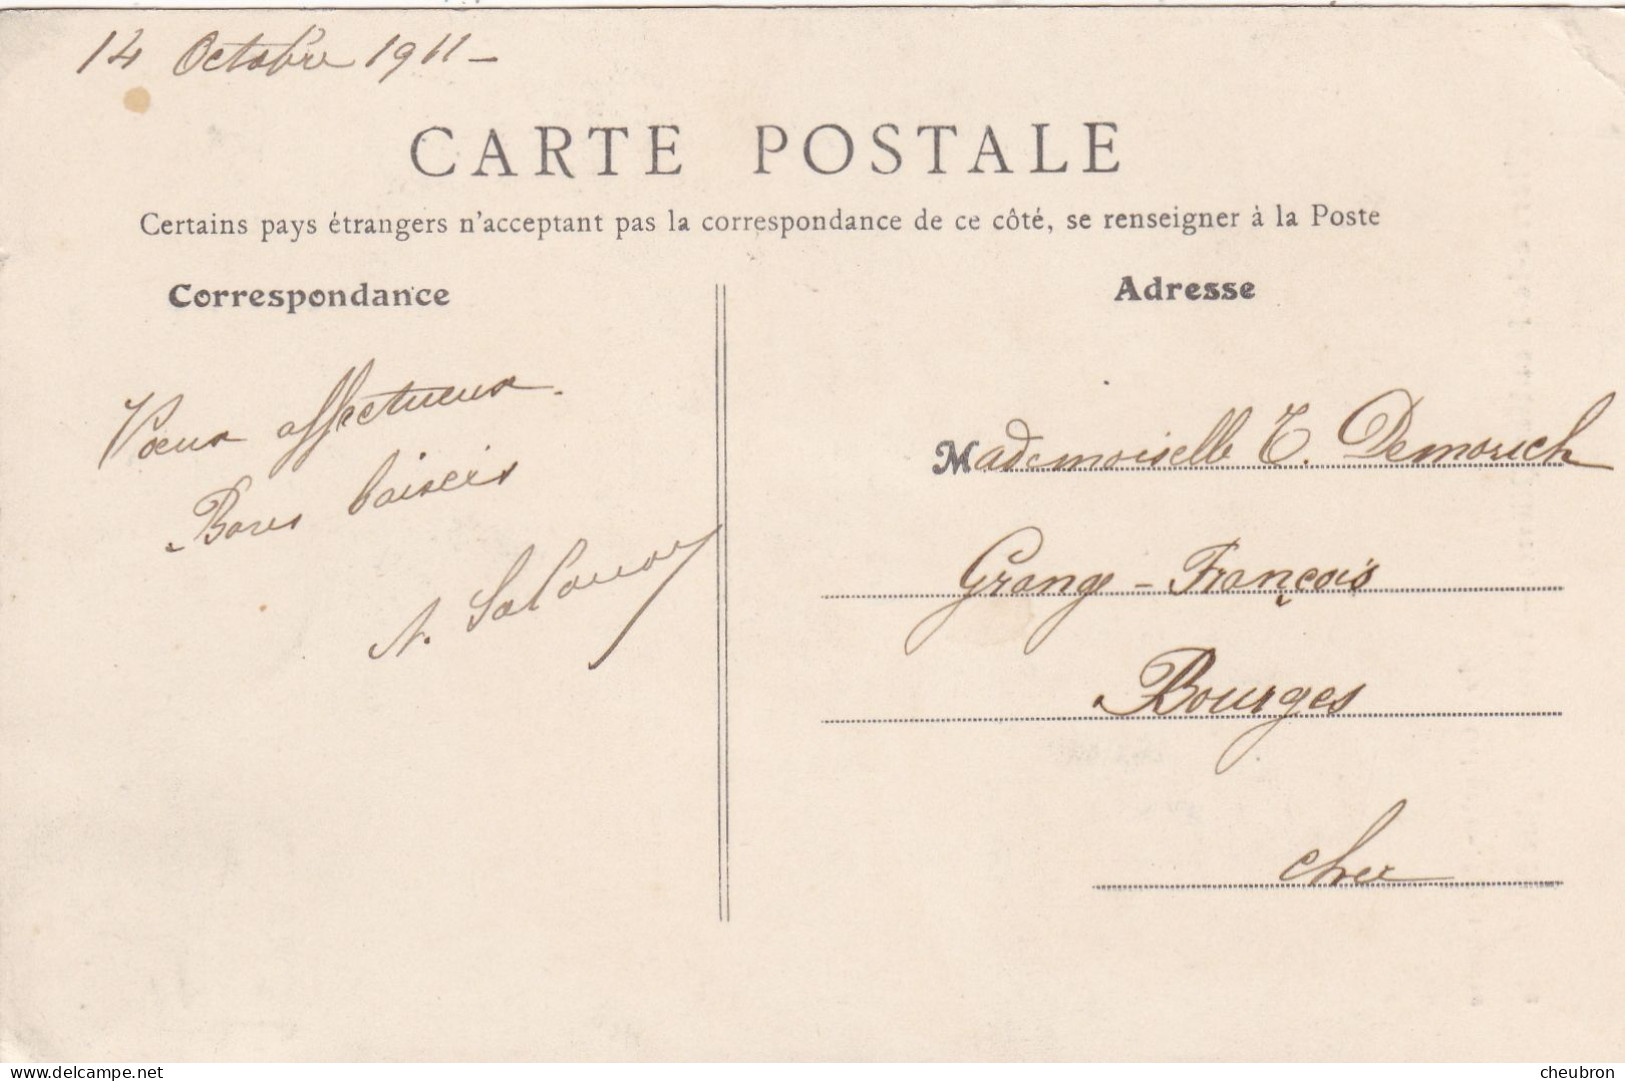 14 Octobre 1911 -
CARTE POSTALE
Certains pays étrangers n'acceptant pas la correspondance de ce côté, se renseigner à la Poste
Correspondance
Adresse
Vœux affectueux.
Bons baisers
A.
Mademoiselle E. Demorieh
Grange - François
Bourges
Cher
Delcampe.net
cheubron